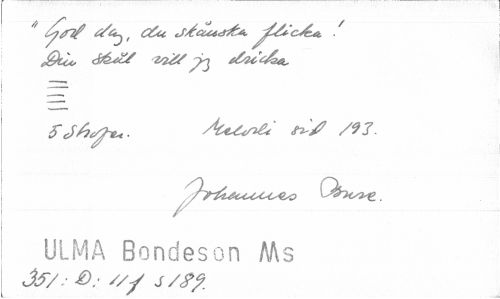 "God dag, du skånska flicka!
Din skål vill jg dricka
5 Strofer. Melodi sid 193.
Johannes
ULMA Bondeson Ms
351: D: 11 f s 189.